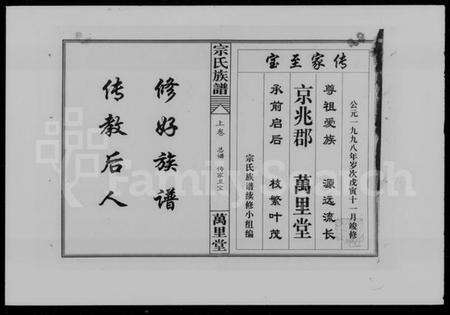 宝至家传
公元一九九八年岁次戊寅十一月竣修
尊祖爱族 源远流长
京兆郡 萬里堂
承前启后 枝繁叶茂
宗氏族谱续修小组编
宗氏族譜
上卷 总谱 传家至宝
萬里堂
修好族谱
传教后人
FamilySearch